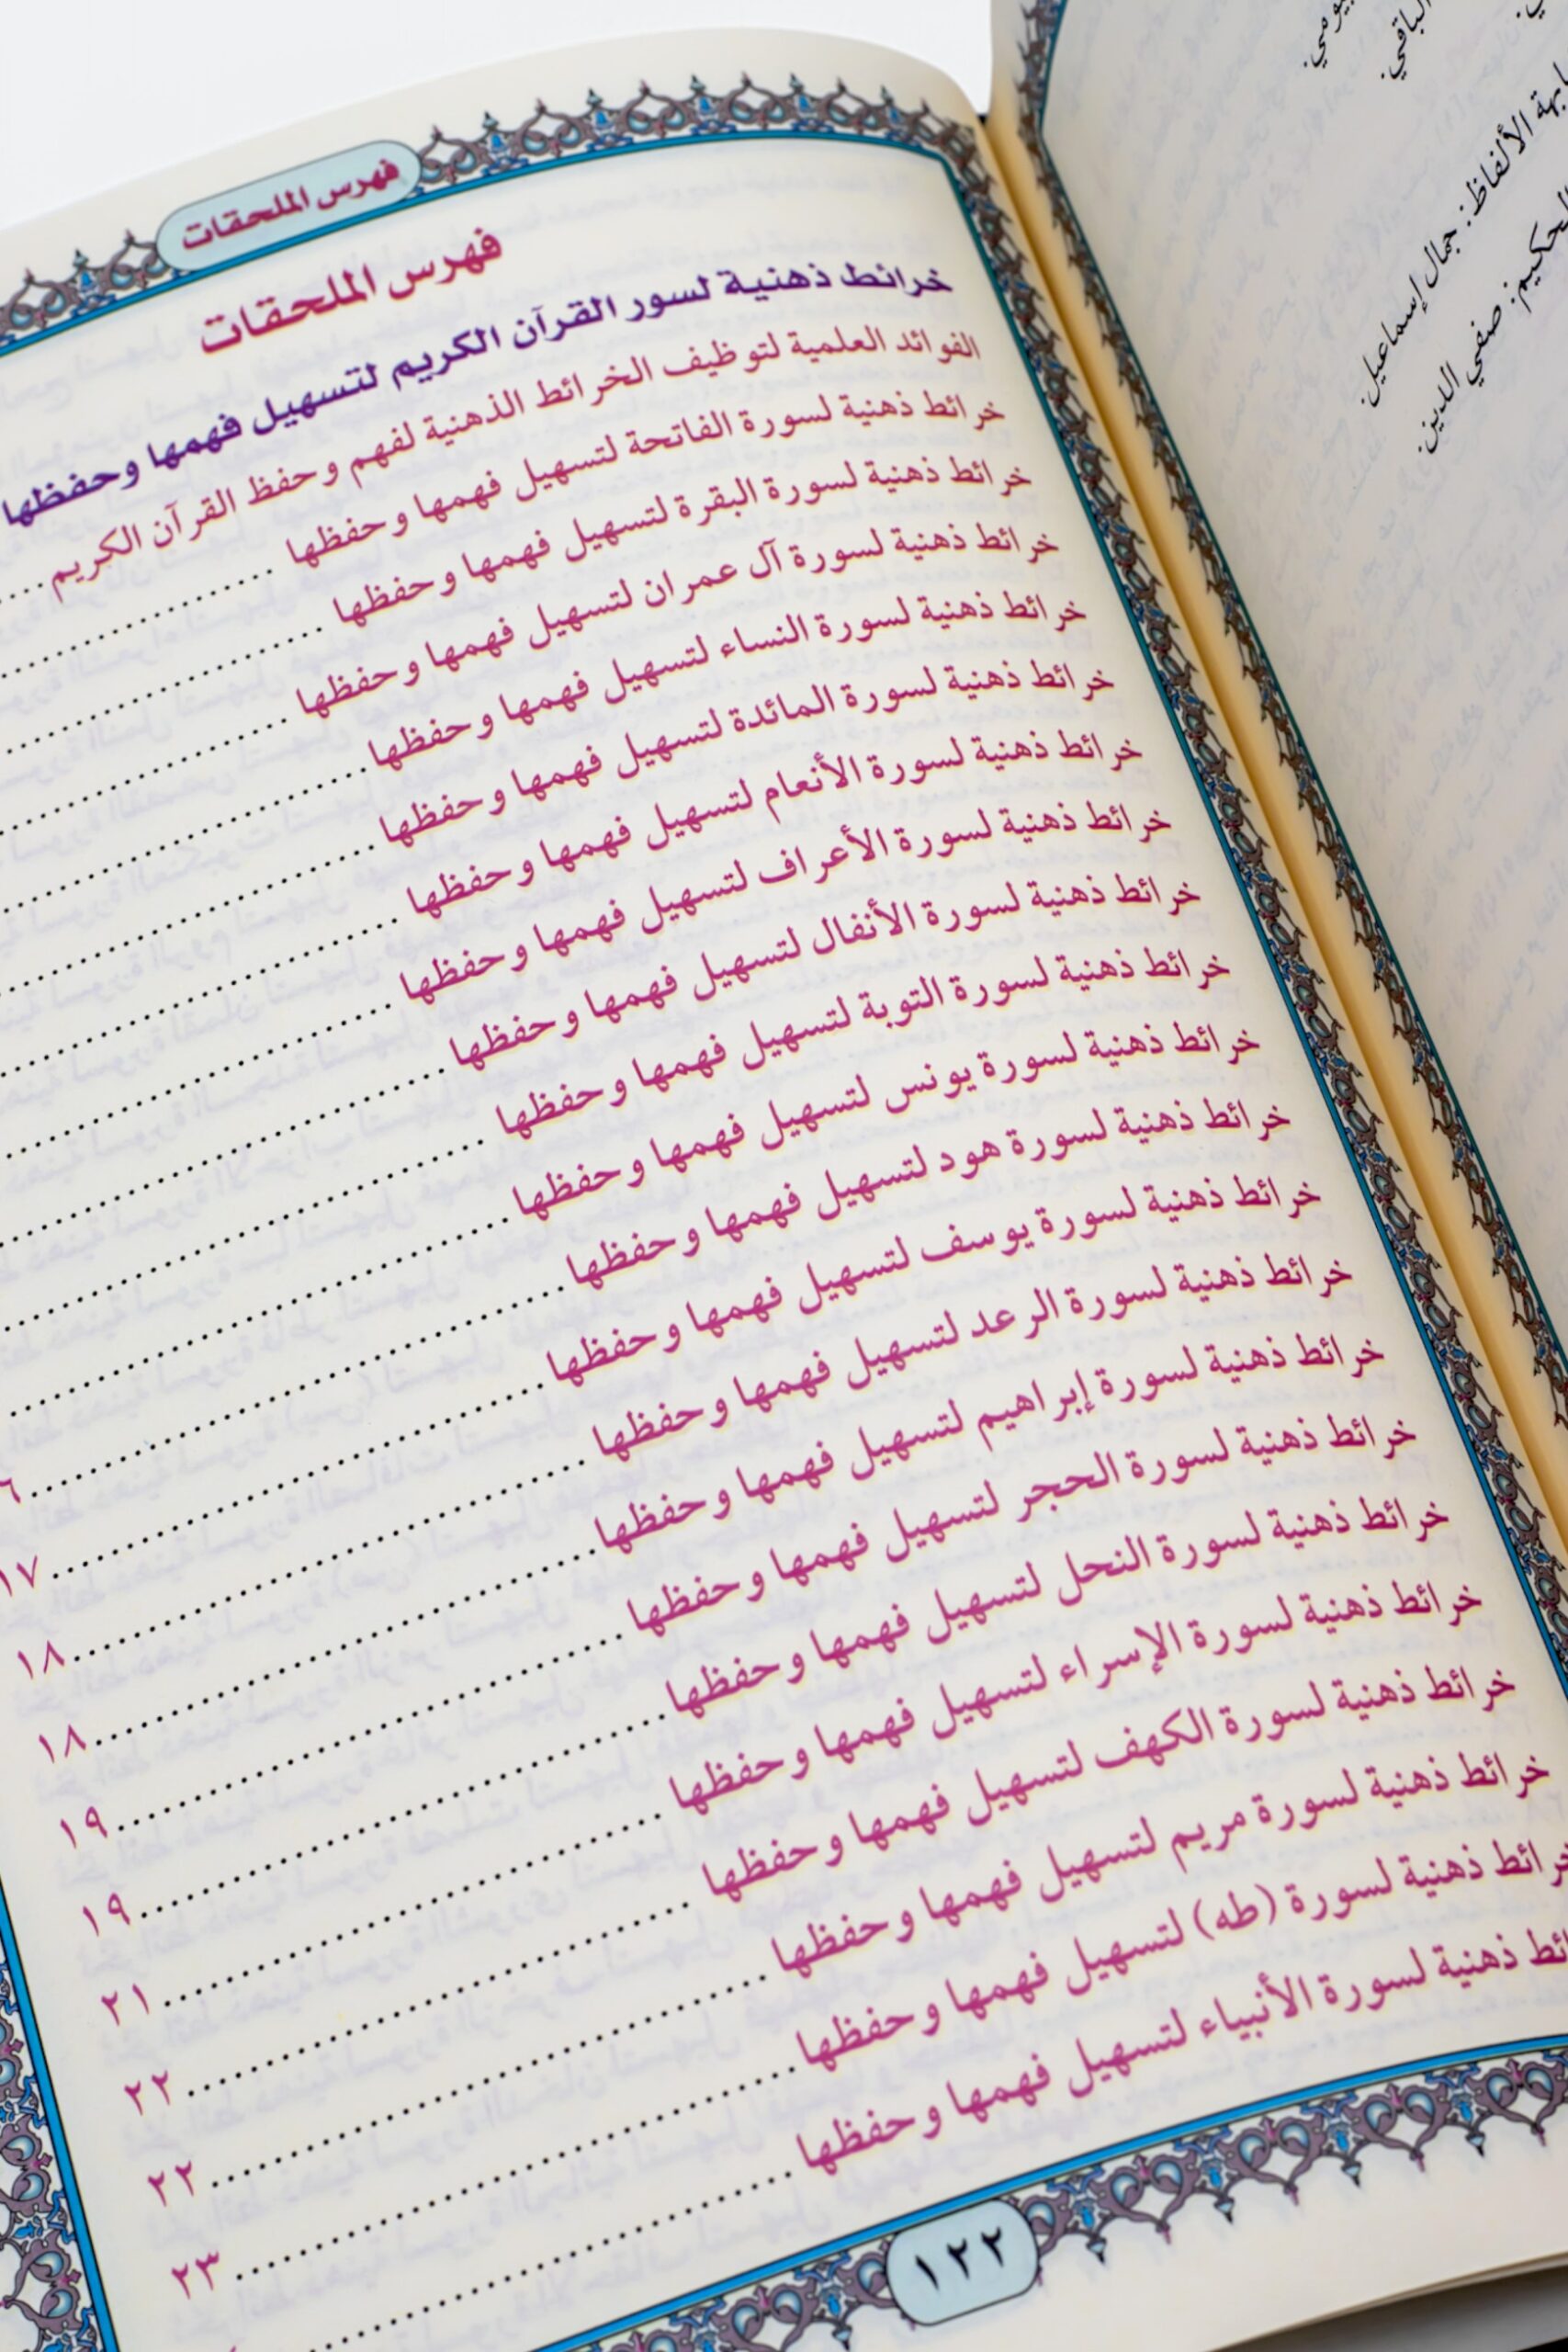 فهرس الملحقات
فهرس الملحقات
خرائط ذهنية لسور القرآن الكريم لتسهيل فهمها وحفظها
الفوائد العلمية لتوظيف الخرائط الذهنية لفهم وحفظ القرآن الكريم ....
خرائط ذهنية لسورة الفاتحة لتسهيل فهمها وحفظها ....
خرائط ذهنية لسورة البقرة لتسهيل فهمها وحفظها ....
خرائط ذهنية لسورة آل عمران لتسهيل فهمها وحفظها ....
خرائط ذهنية لسورة النساء لتسهيل فهمها وحفظها ....
خرائط ذهنية لسورة المائدة لتسهيل فهمها وحفظها ....
خرائط ذهنية لسورة الأنعام لتسهيل فهمها وحفظها ....
خرائط ذهنية لسورة الأعراف لتسهيل فهمها وحفظها ....
خرائط ذهنية لسورة الأنفال لتسهيل فهمها وحفظها ....
خرائط ذهنية لسورة التوبة لتسهيل فهمها وحفظها ....
خرائط ذهنية لسورة يونس لتسهيل فهمها وحفظها ....
خرائط ذهنية لسورة هود لتسهيل فهمها وحفظها .... ٦
خرائط ذهنية لسورة يوسف لتسهيل فهمها وحفظها .... ١٧
خرائط ذهنية لسورة الرعد لتسهيل فهمها وحفظها .... ١٨
خرائط ذهنية لسورة إبراهيم لتسهيل فهمها وحفظها .... ١٨
خرائط ذهنية لسورة الحجر لتسهيل فهمها وحفظها .... ١٩
خرائط ذهنية لسورة النحل لتسهيل فهمها وحفظها .... ١٩
خرائط ذهنية لسورة الإسراء لتسهيل فهمها وحفظها .... ٢١
خرائط ذهنية لسورة الكهف لتسهيل فهمها وحفظها .... ٢٢
خرائط ذهنية لسورة مريم لتسهيل فهمها وحفظها .... ٢٢
خرائط ذهنية لسورة (طه) لتسهيل فهمها وحفظها .... ٢٣
ذهنية لسورة الأنبياء لتسهيل فهمها وحفظها ....
١٢٢
الألفاظ: جمال إسماعيل.
صفي الدين.